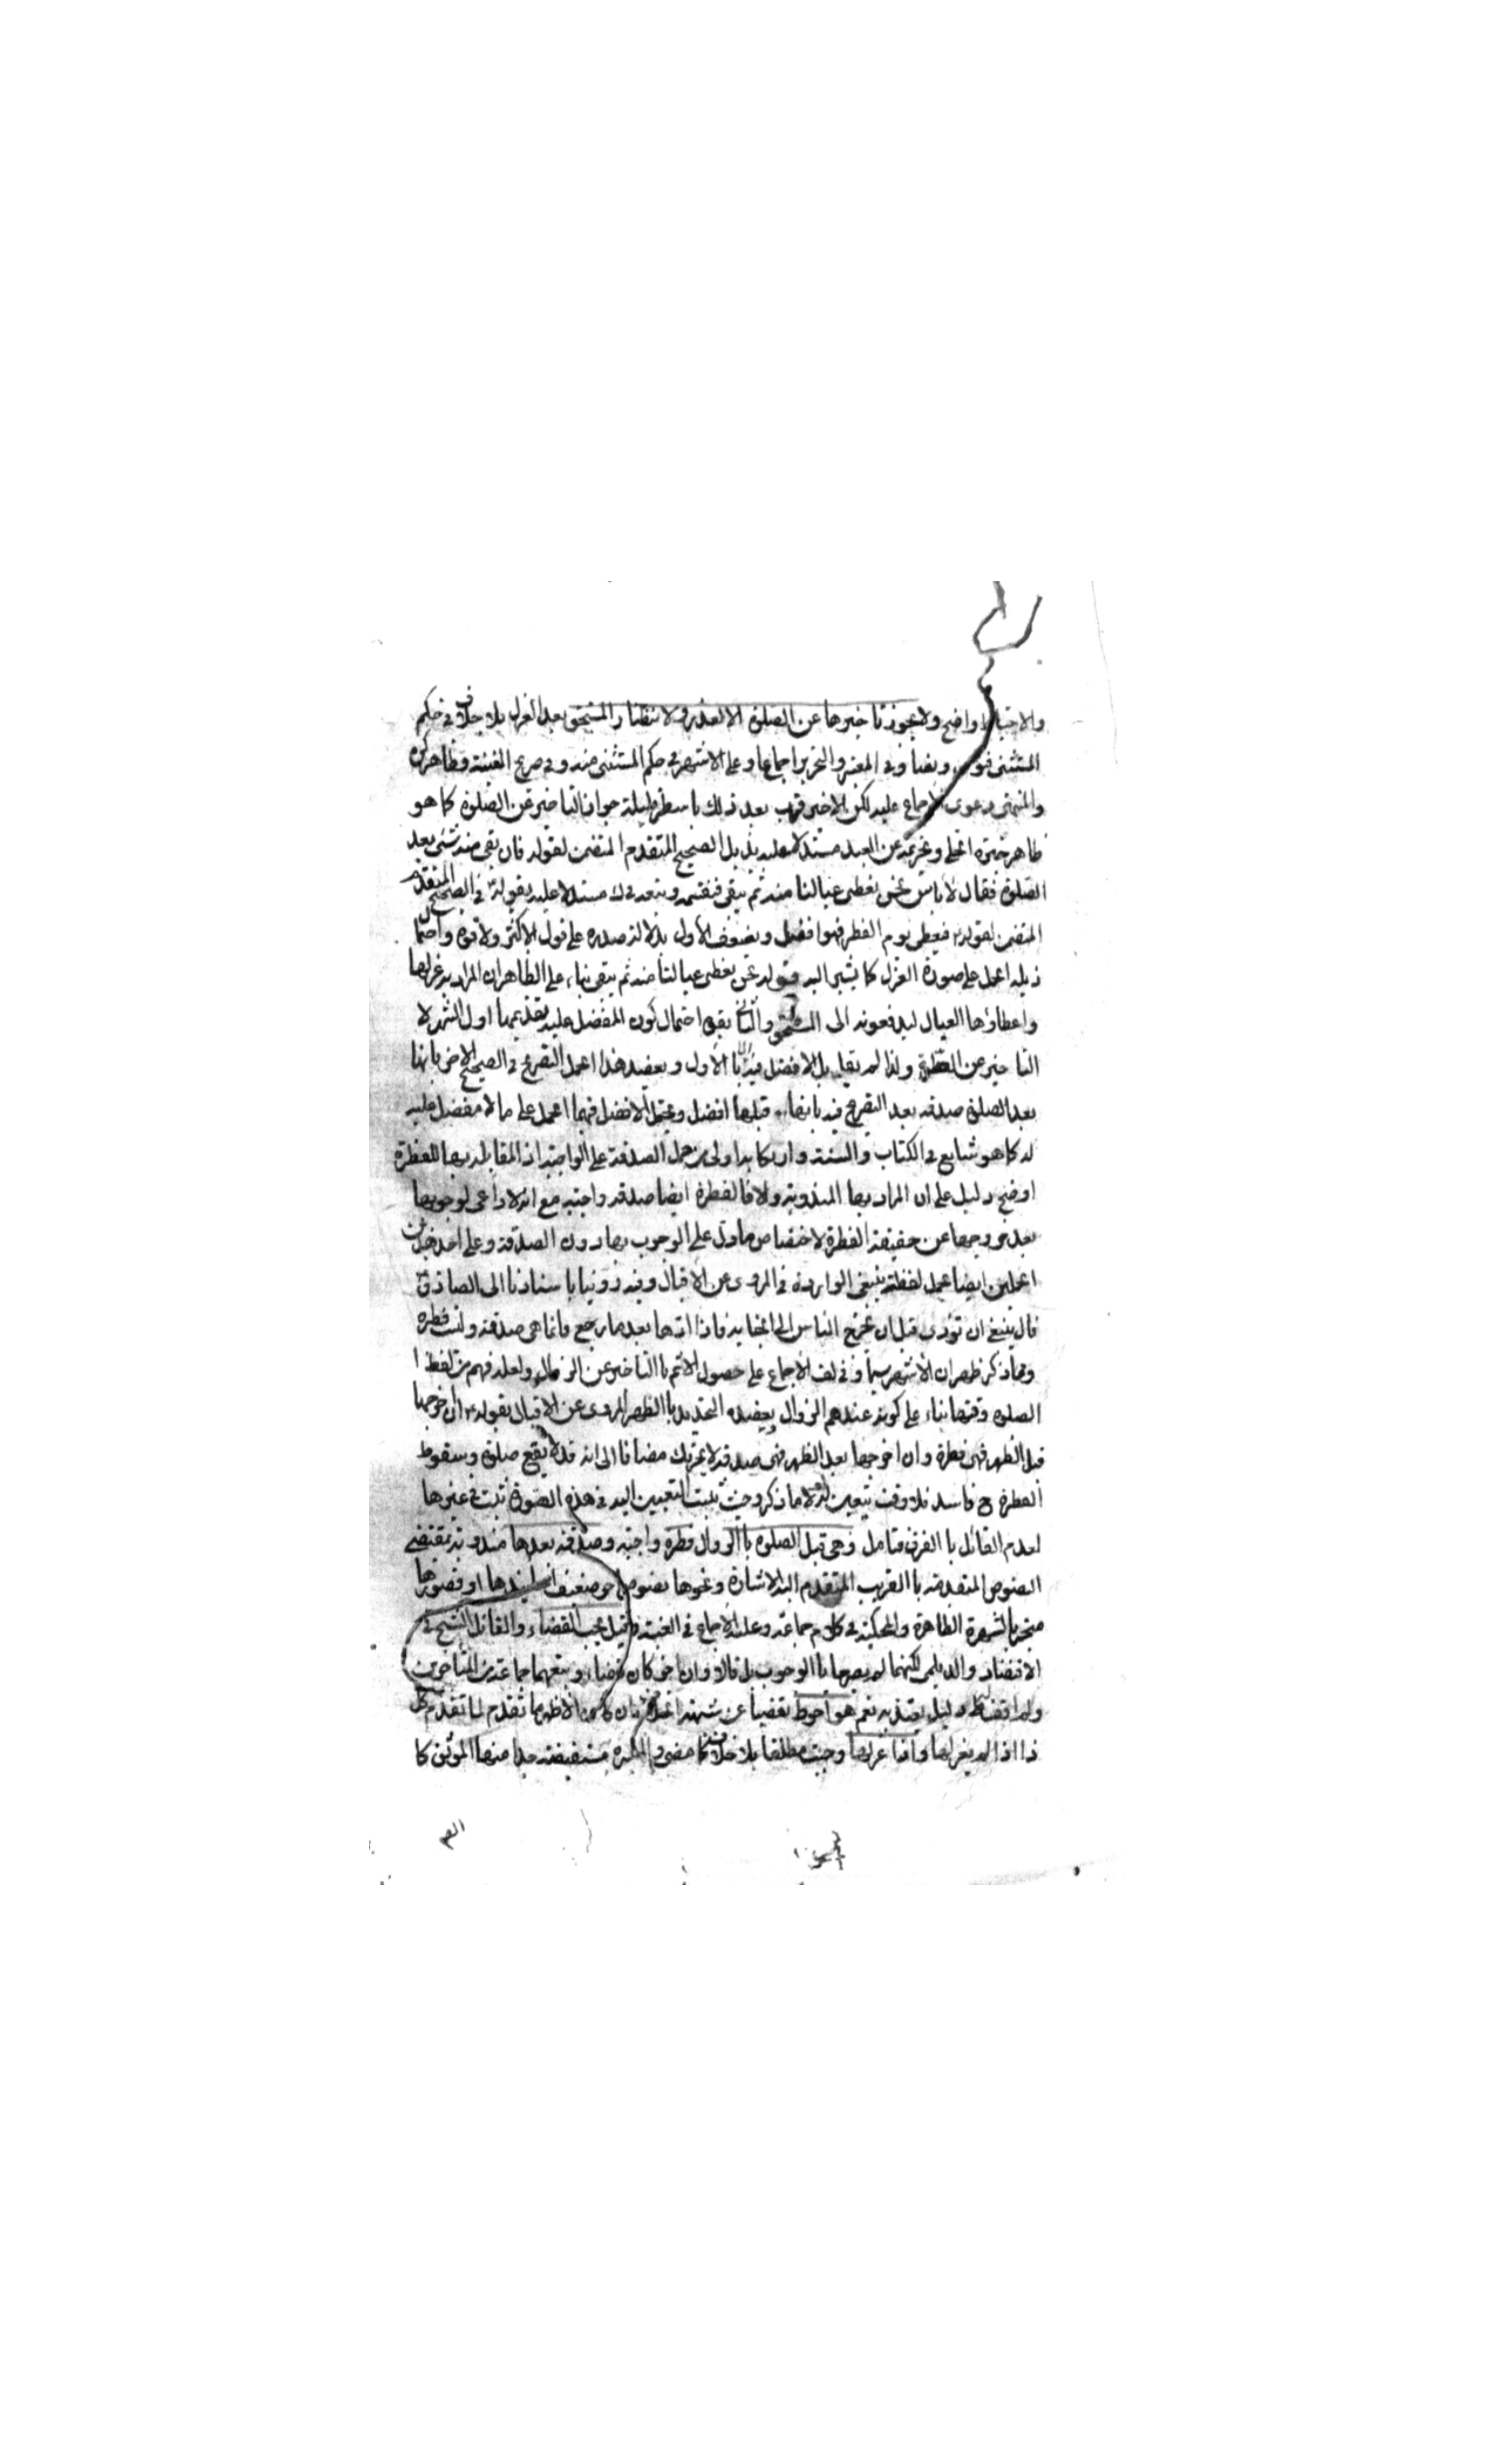 والاحتياط واضح ولا يجوز تاخيرها عن الصلوة الا لعذر ولانتظار المستحق بعد العزل بلا خلاف في حكم
المستثنى فتوى ونصا وفي المعتبر والتحرير اجماعا وعلى الاشهر في حكم المستثنى منه وفي صريح الغنية وظاهر كره
والمنتهى دعوى الاجماع عليه لكن الاخير قرب بعد ذلك باسطر قليلة جواز التاخير عن الصلوة كما هو
ظاهر خيرة الحلي وتحريمه عن العيد مستدلا عليه بذيل الصحيح المتقدم المتضمن لقوله فان بقي منه شئ بعد
الصلوة فقال لا باس نحن نعطي عيالنا منه ثم يبقى فنقسمه وتبعه في ك مستدلا عليه بقوله في الصحيح المتقدم
المتضمن لقوله فيعطى يوم الفطر فهو افضل ويضعف الاول بدلالة صدره على قول الاكثر ولا قوة واحتمال
ذيله الحمل على صورة العزل كما يشير اليه قوله نحن نعطي عيالنا منه ثم يبقى بناء على الظاهر ان المراد به عزلها
واعطاؤها العيال ليدفعونه الى المستحق والثاني بقوة احتمال كون المفضل عليه تقديمها اول الشهر لا
التاخير عن الصلوة ولذا لم يقل بل الافضل مريدا الاول ويعضد هذا الحمل التصريح في الصحيح الاخر بانها
بعد الصلوة صدقة بعد التصريح فيه بانها قبلها افضل ويحتمل الافضل فيهما الحمل على ما لا مفضل عليه
له كما هو شايع في الكتاب والسنة وارتكابه اولى من حمل الصدقة على الواجبة اذ المقابلة بها للفطرة
اوضح دليل على ان المراد بها المندوبة والا فالفطرة ايضا صدقة واجبة مع انه لا داعي لوجوبها
بعد خروجها عن حقيقة الفطرة لاختصاص ما دل على الوجوب بها دون الصدقة وعلى احد هذين
الحملين ايضا يحمل لفظة ينبغي الواردة في المروي عن الاقبال وفيه روينا باسنادنا الى الصادق
قال ينبغي ان تؤدى قبل ان يخرج الناس الى الجبانة فاذا اداها بعد ما يرجع فانما هي صدقة وليست فطرة
ومما ذكر ظهر ان الاشهر سيما وفي لف الاجماع على حصول الاثم بالتاخير عن الزوال ولعله فهم من لفظ
الصلوة وقتها بناء على كونه عندهم الزوال ويعضده التحديد بالظهر المروي عن الاقبال بقوله ان اخرجها
قبل الظهر فهي فطرة وان اخرجها بعد الظهر فهي صدقة لا يجزيك مضافا الى انه قد لا يقع صلوة وسقوط
الفطرة ح فاسد فلا وقت يتعين لها الا ما ذكر وحيث ثبت التعيين اليه في هذه الصورة ثبت في غيرها
لعدم القائل بالفرق فتامل وهي قبل الصلوة بالزوال فطرة واجبة وصدقة بعدها مندوبة بمقتضى
النصوص المتقدمة بالتقريب المتقدم اليه الاشارة ونحوها نصوص اخر ضعف اسانيدها او قصورها
منجبر بالشهرة الظاهرة والمحكية في كلام جماعة وعليه الاجماع في الغنية وقيل يجب القضاء والقائل الشيخ في
الاقتصاد والديلمي لكنهما لم يصرحا بالوجوب بل قالا وان اخر كان قضاء وتبعهما جماعة من المتاخرين
ولم اقف لهم على دليل يعتد به نعم هو احوط تفصيا عن شبهة الخلاف وان كان الاظهر ما تقدم لما تقدم كل
ذا اذا لم يعزلها واذا عزلها وجبت مطلقا بلا خلاف كما مضى والمعتبرة مستفيضة جدا منها الموثق كا